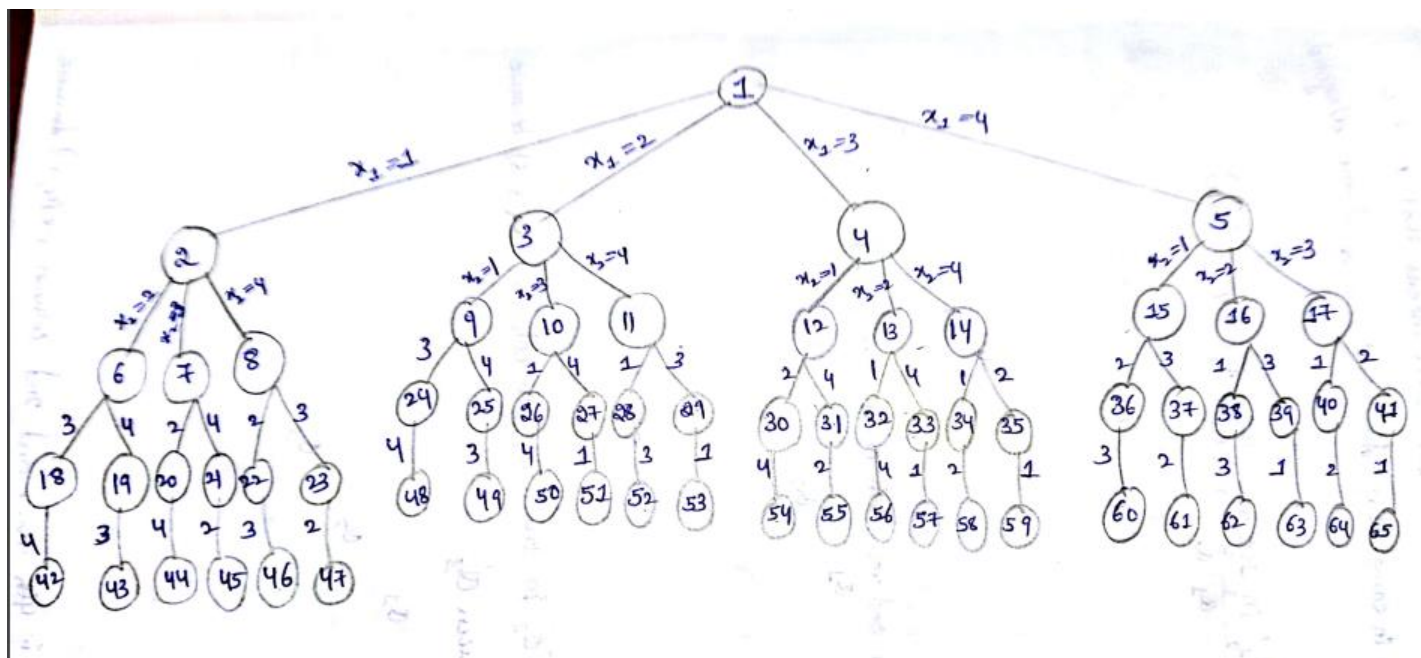 1
x₁=1 x₁=2 x₁=3 x₁=4
2 3 4 5
x₂=2 x₂=4 x₂=1 x₂=3 x₂=4 x₂=1 x₂=2 x₂=4 x₂=1 x₂=2 x₂=3
6 7 8 9 10 11 12 13 14 15 16 17
3 4 2 4 2 3 3 4 1 4 1 3 2 4 1 4 1 2 2 3 1 3 1 2
18 19 20 21 22 23 24 25 26 27 28 29 30 31 32 33 34 35 36 37 38 39 40 41
4 3 4 2 3 2 4 3 4 1 3 1 4 2 4 1 2 1 3 2 3 1 2 1
42 43 44 45 46 47 48 49 50 51 52 53 54 55 56 57 58 59 60 61 62 63 64 65